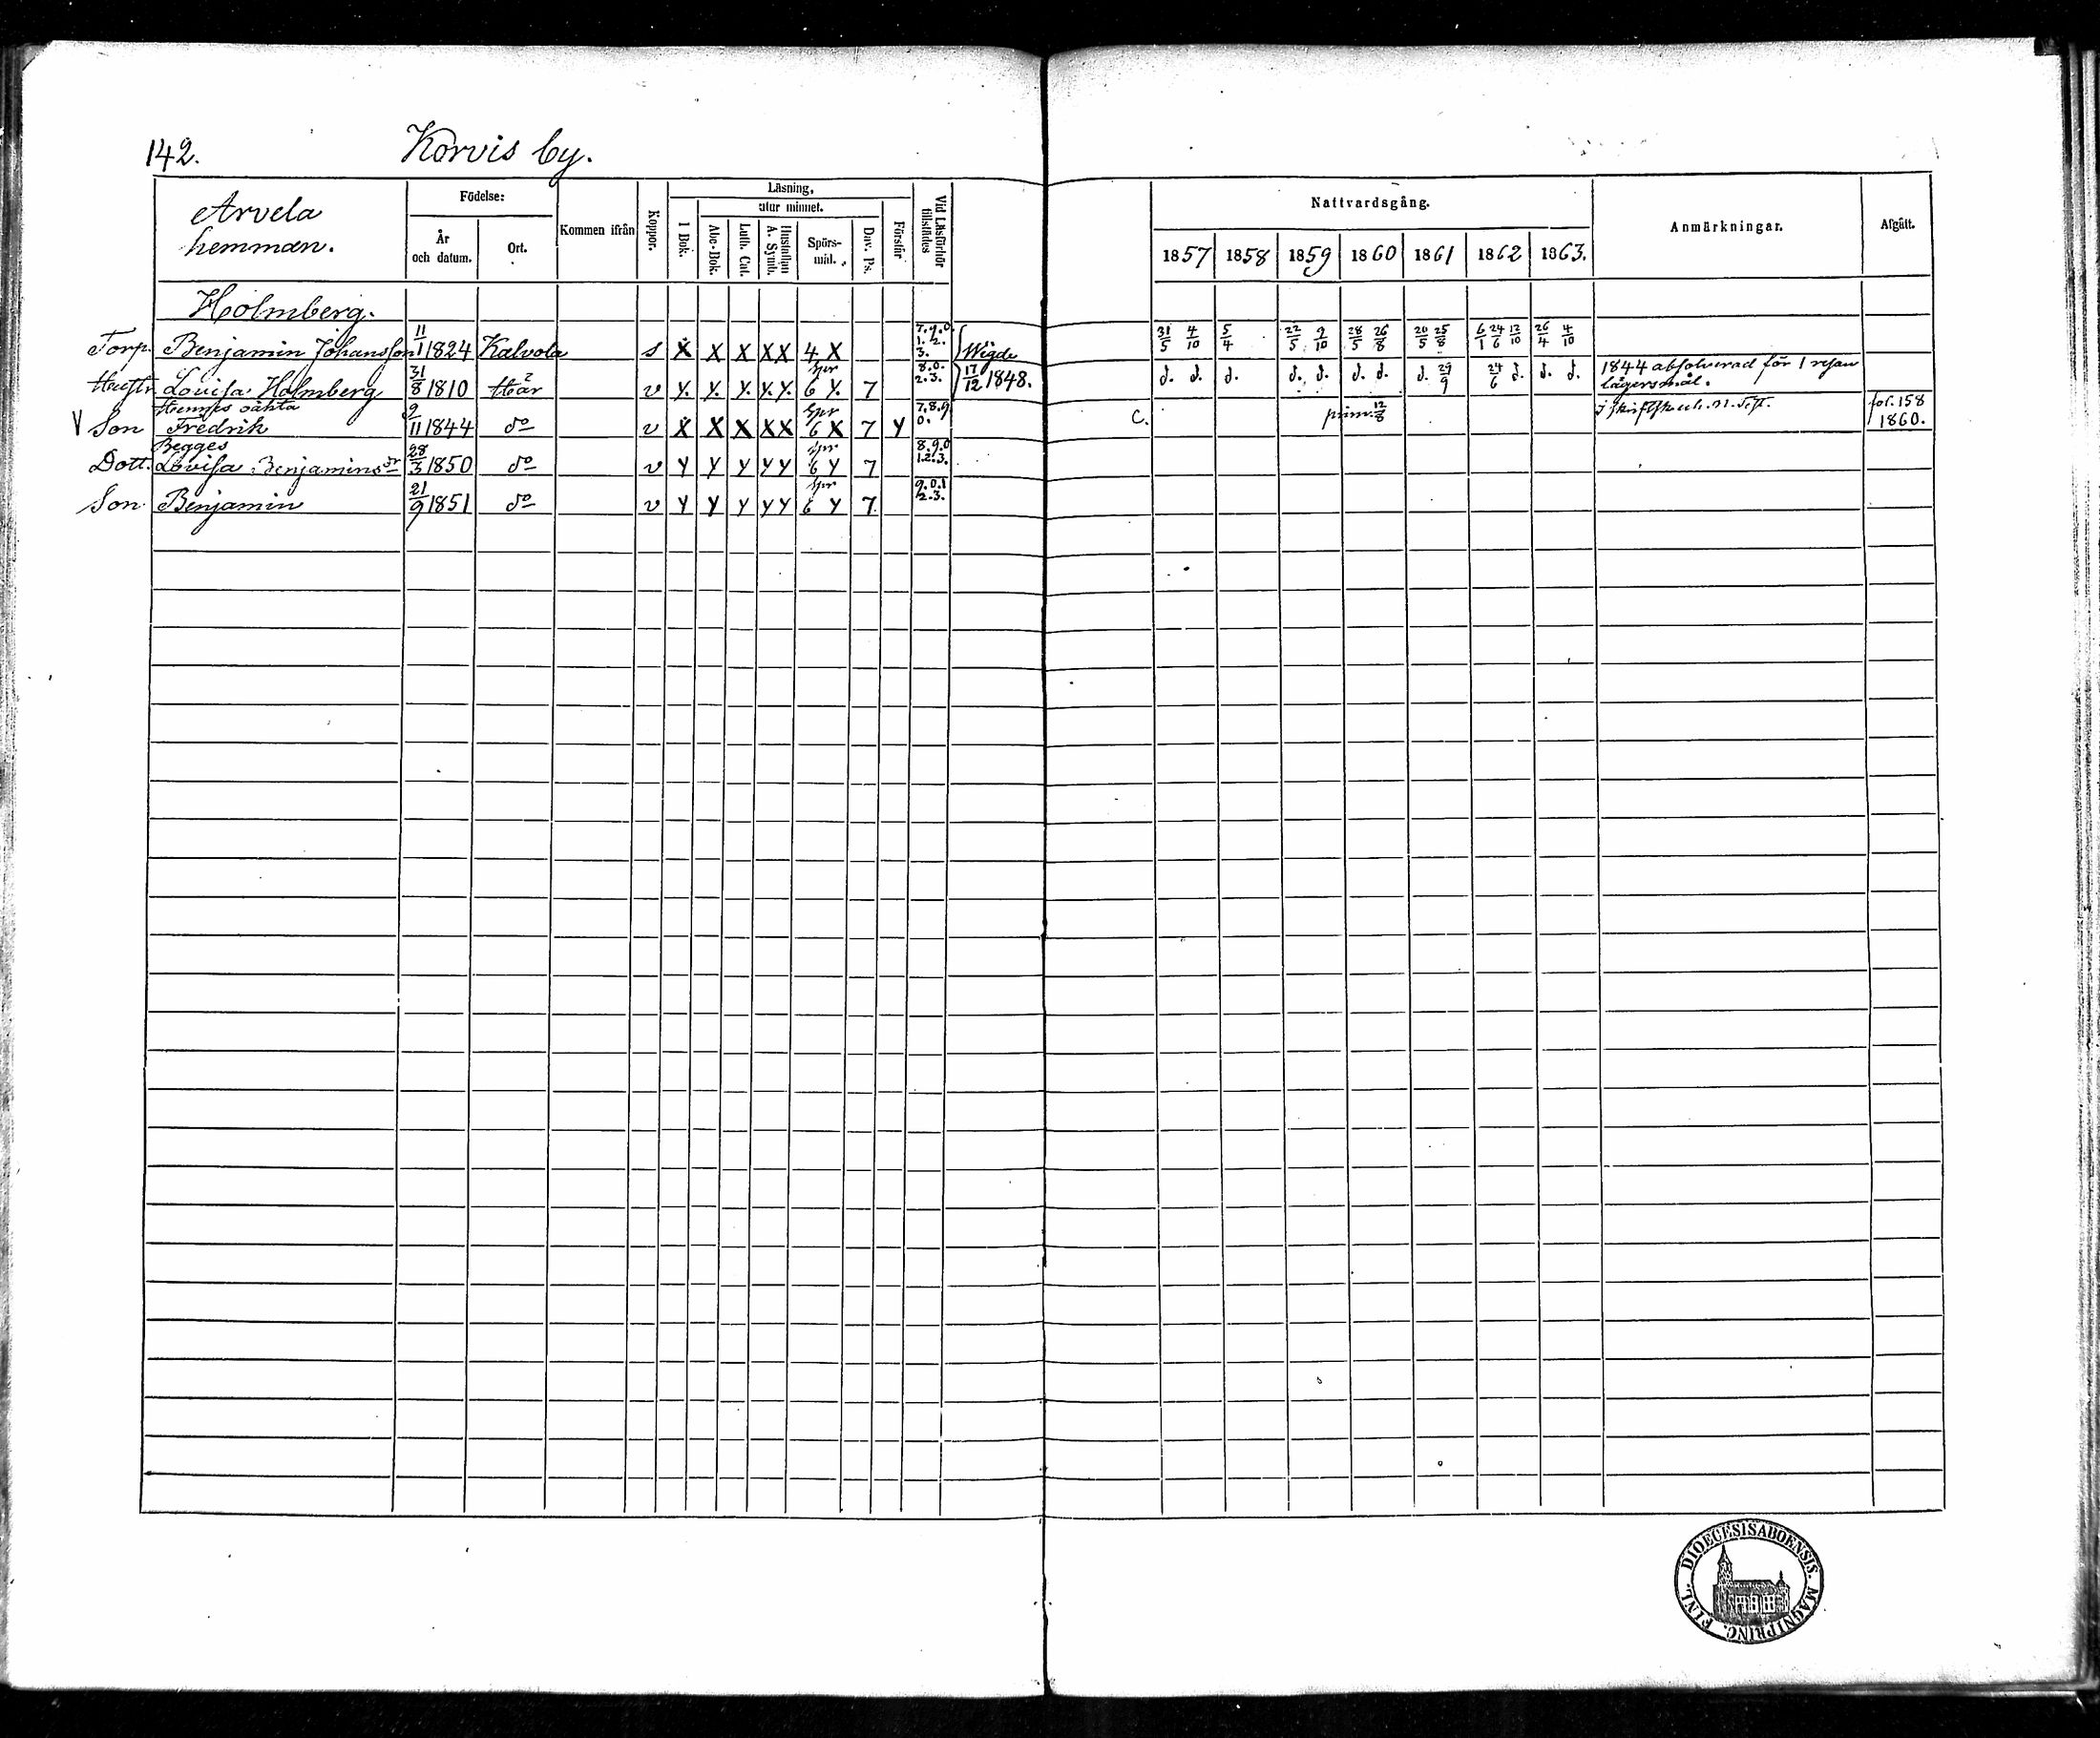 142. Korvis by.
Arvela
hemman.
Födelse:
År
och datum.
Ort.
Kommen ifrån
Koppor.
Läsning,
utur minnet.
I Bok.
Abc-Bok.
Luth. Cat.
Hustaflan
A. Symb.
Spörs-
mål.
Dav. Ps.
Förstår
Vid Läsförhör
tillstädes
Nattvardsgång.
1857 1858 1859 1860 1861 1862 1863.
Anmärkningar.
Afgått.
Holmberg.
Torp. Benjamin Johansson 11/1 1824 Kalvola s X X X XX 4 X 7.9.0. 1.2. 3. Wigde 31/5 4/10 5/4 22/5 9/10 28/5 26/8 20/5 25/8 6/1 24/6 12/10 26/4 4/10
Hustr Lovisa Holmberg 31/8 1810 Här v Y. Y. Y. Y.Y. spr 6 Y. 7 8.0. 2.3. 17/12 1848. d. d. d. d. d. d. d. d. 29/9 24/6 d. d. d. 1844 absolverad för 1 resan
lägersmål.
Hennes oäkta
V Son Fredrik 9/11 1844 do v X X X XX spr 6 X 7 Y 7.8.9 0. C. prim. 12/8 fol. 158
1860.
Begges
Dott. Lovisa Benjaminsdr 28/3 1850 do v Y Y Y YY spr 6 Y 7 8.9.0 1.2.3.
Son Benjamin 21/9 1851 do v Y Y Y YY spr 6 Y 7. 9.0.1 2.3.
DIOECESIS ABOENSIS. MAGNI PRINC. FINL.